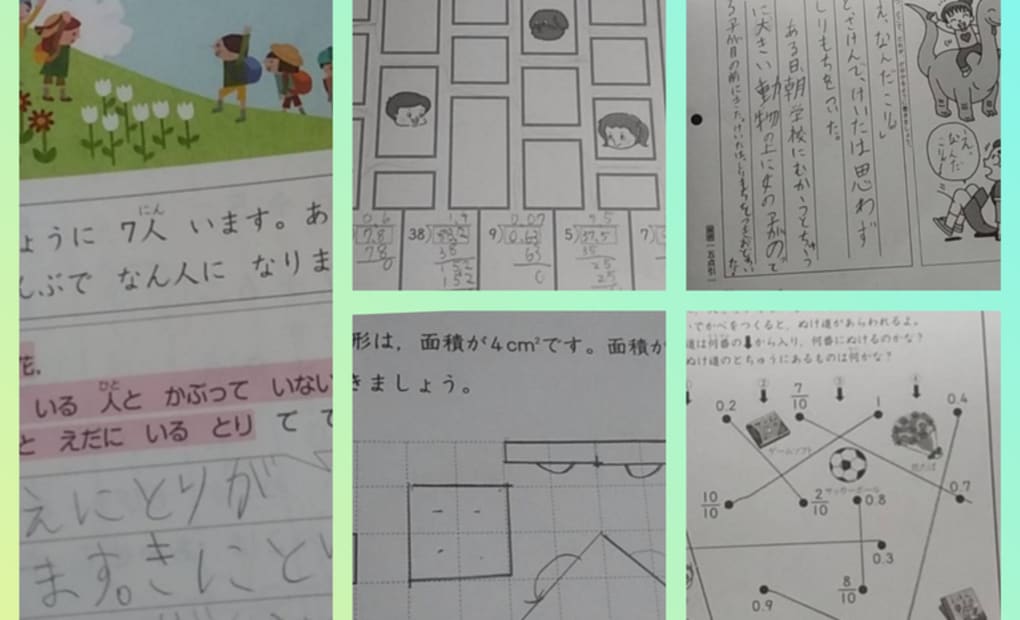 ように 7人 います。あ
にん
んぶで なん人に なりま
花.
いる 人と かぶって いない
ひと
と えだに いる とり て て
えにとりが
ます。きにと
0.6
7.8
78
0
1.4
38)53.2
38
152
152
0.07
9)0.63
63
0
5)37.5
35
25
25
7)
え、なんだこりゃ」
とさけんで、けいたは思わず
しりもちをついた。
ある日、朝学校にむかうとちゅう
に大きい動物の上に女の子がのって
え、
なんだ
こりゃ!
形は，面積が4cm²です。面積が
きましょう。
でかべをつくると，ぬけ道があらわれるよ。
道は何番の⬇から入り，何番にぬけるのかな？
ぬけ道のとちゅうにあるものは何かな？
② ③ ④
0.2
7/10
1
0.4
ゲームソフト
花たば
サッカーボール
10/10
2/10
0.8
0.7
0.3
8/10
0.9